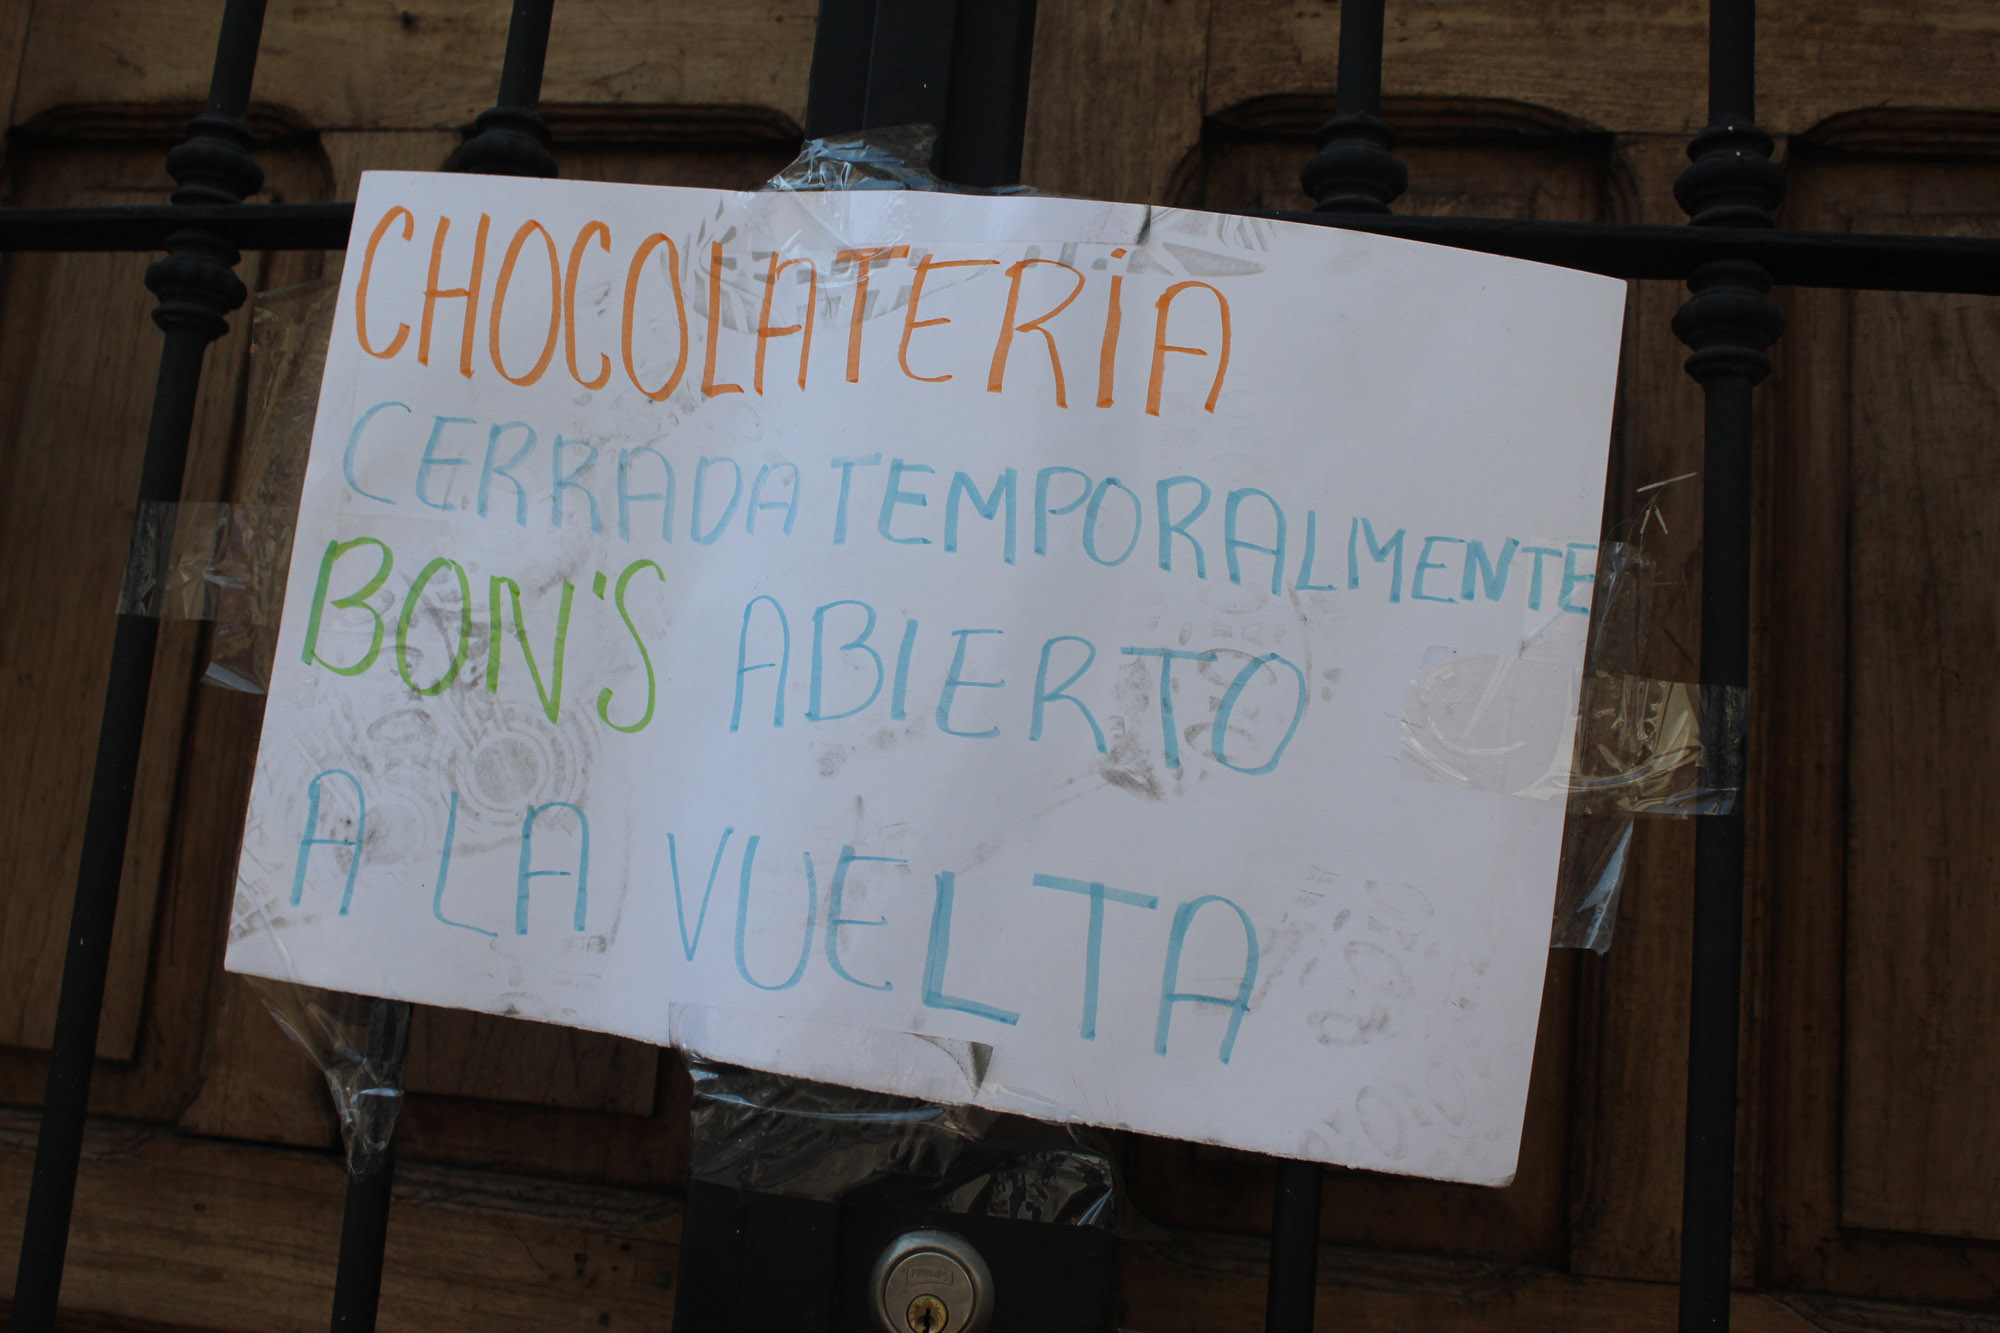 CHOCOLATERÍA
CERRADA TEMPORALMENTE
BON'S ABIERTO
A LA VUELTA